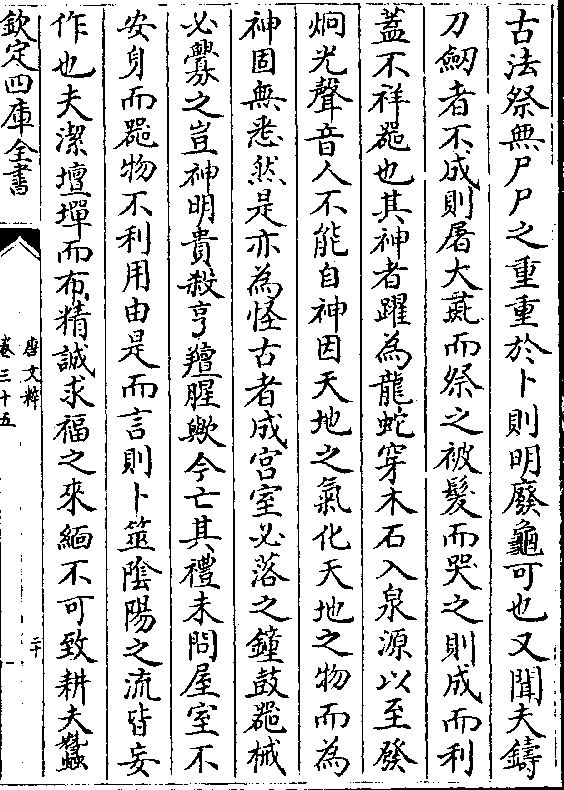 古法祭無尸尸之重重於卜則明廢龜可也又聞夫鑄
刀劒者不成則屠大彘而祭之被髪而哭之則成而利
蓋不祥器也其神者躍為龍蛇穿木石入泉源以至發
炯光聲音人不能自神因天地之氣化天地之物而為
神固無悉然是亦為怪古者成宫室必落之鐘鼓器械
必釁之豈神明貴殺亨羶腥歟今亡其禮未問屋室不
安身而器物不利用由是而言則卜筮陰陽之流皆妄
作也夫潔壇墠而布精誠求福之來緬不可致耕夫蠶
欽定四庫全書
唐文粹
卷三十五
二十